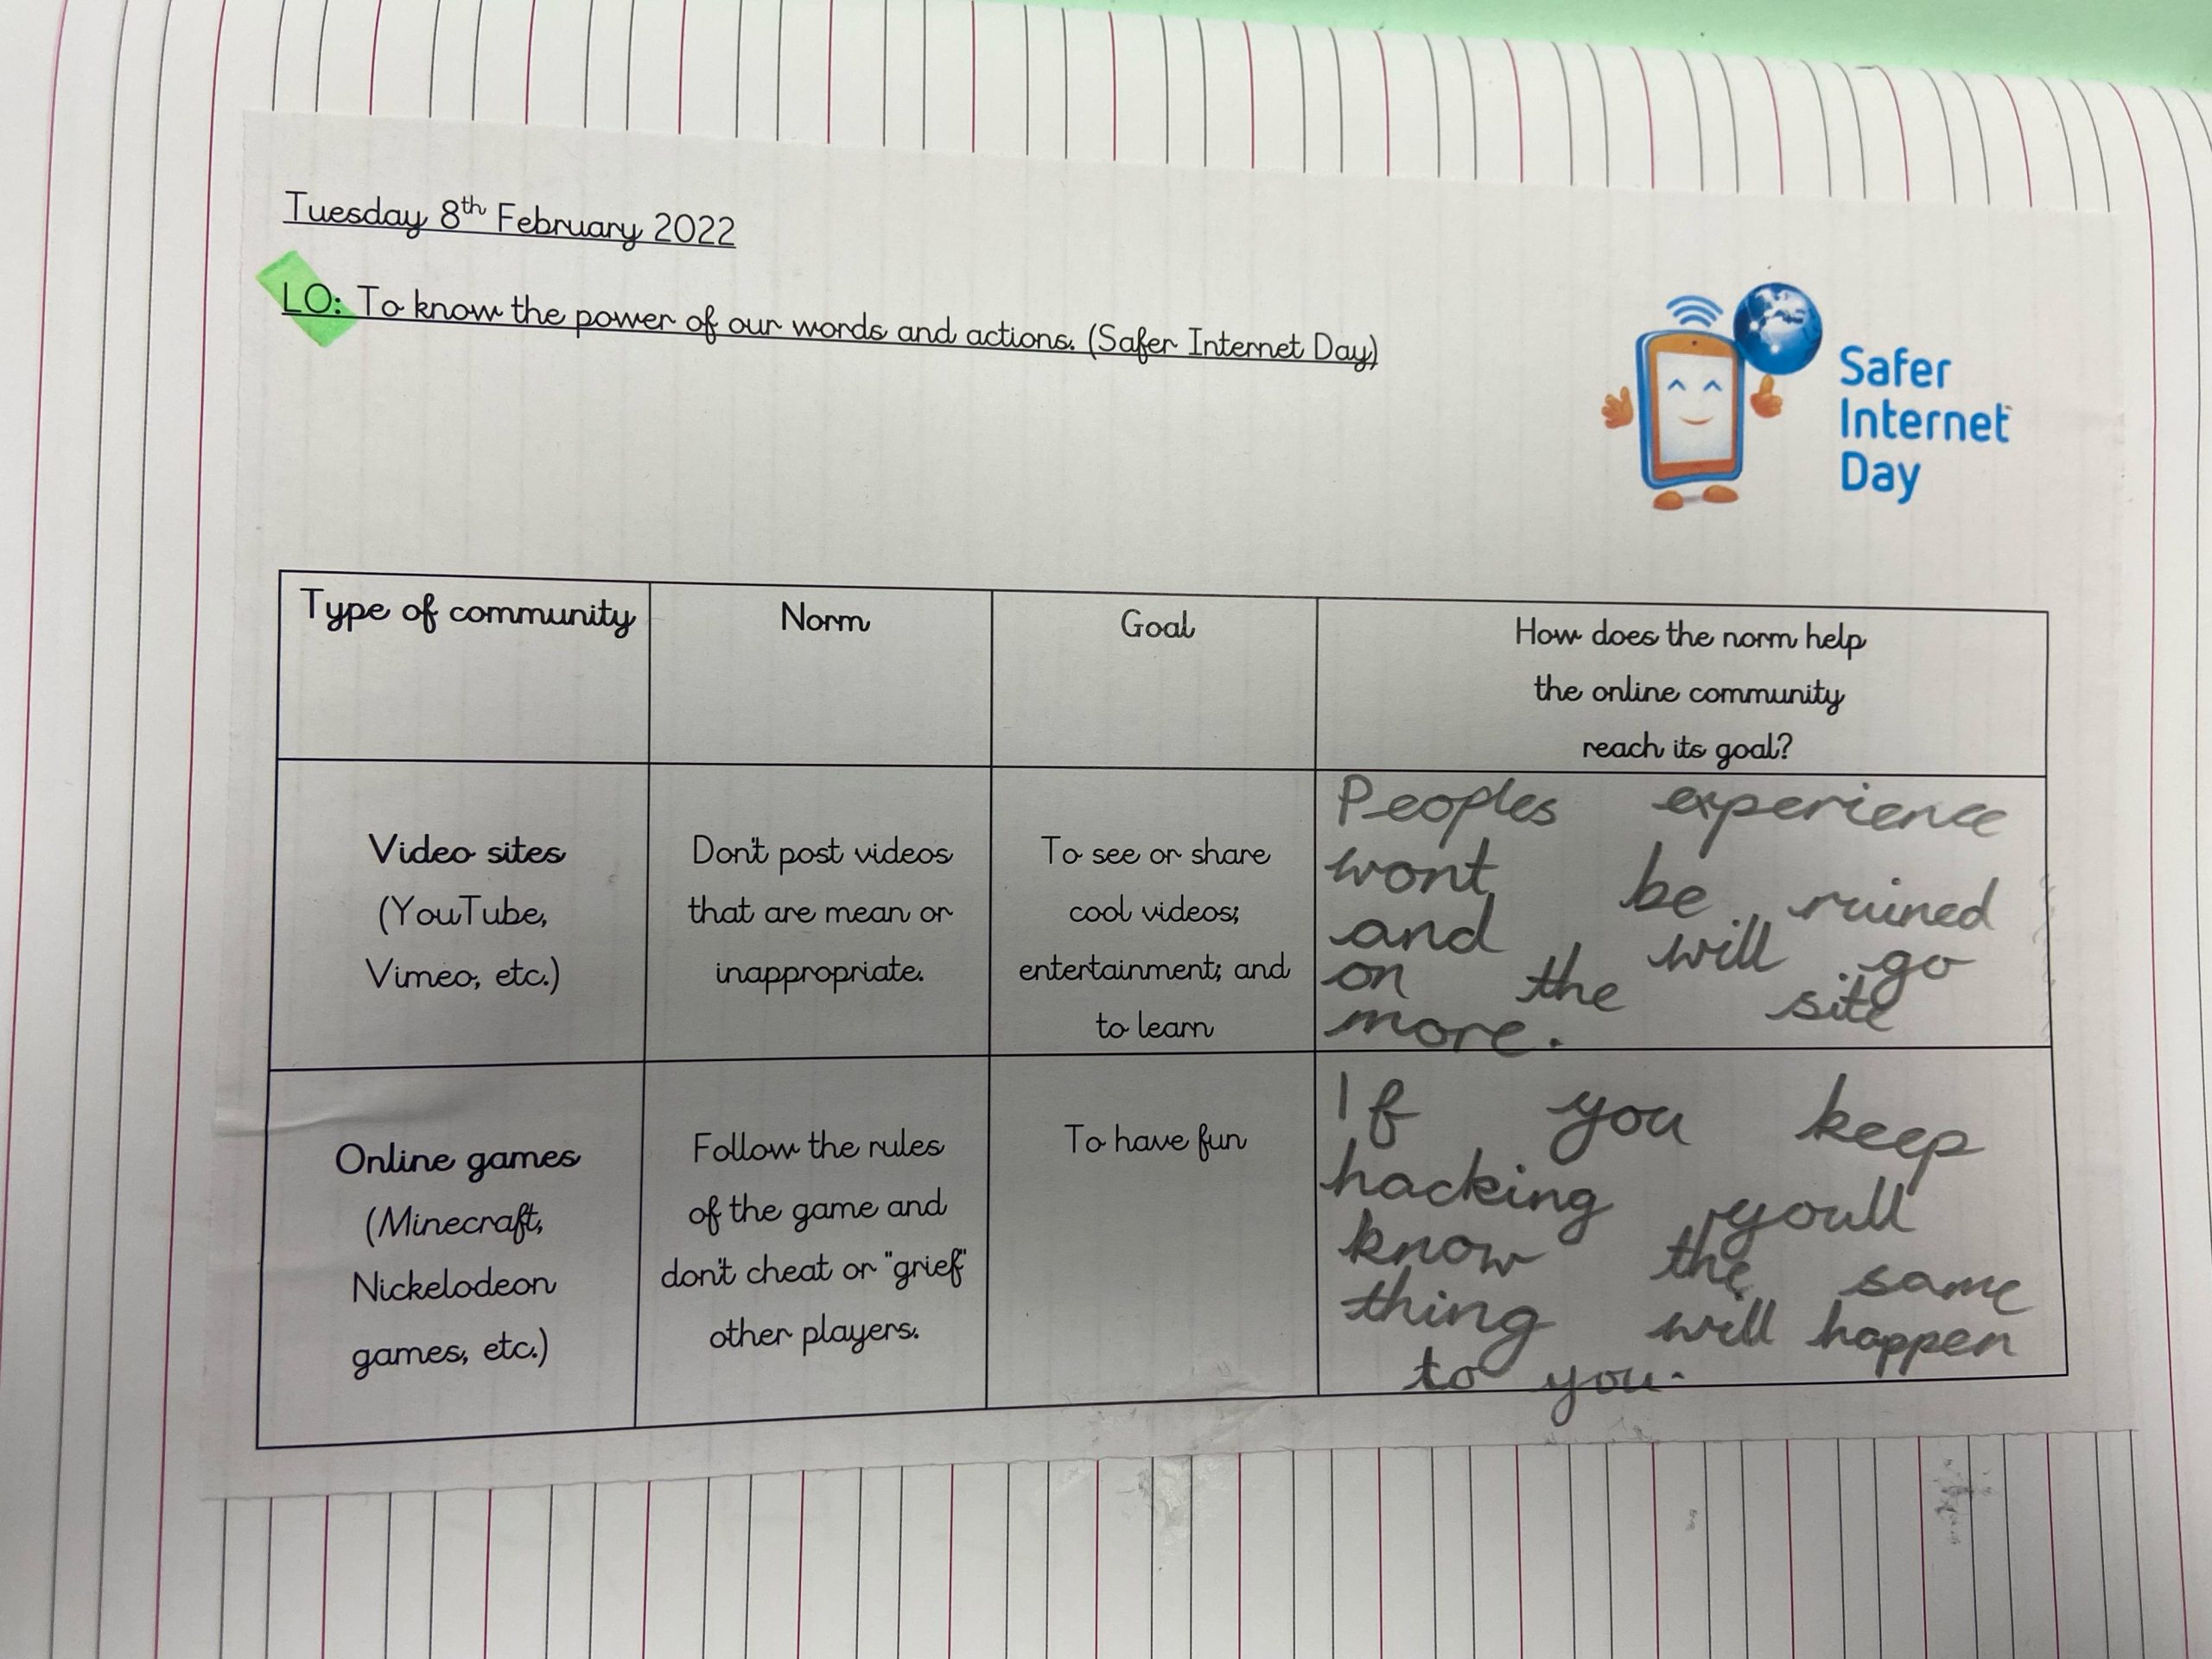 Tuesday 8th February 2022
LO: To know the power of our words and actions. (Safer Internet Day)
Safer
Internet
Day
Type of community
Norm
Goal
How does the norm help
the online community
reach its goal?
Video sites
(YouTube,
Vimeo, etc.)
Don't post videos
that are mean or
inappropriate.
To see or share
cool videos;
entertainment; and
to learn
Peoples experience
wont be ruined
and will go
on the site
more.
Online games
(Minecraft,
Nickelodeon
games, etc.)
Follow the rules
of the game and
don't cheat or "grief"
other players.
To have fun
If you keep
hacking youll
know the same
thing will happen
to you.